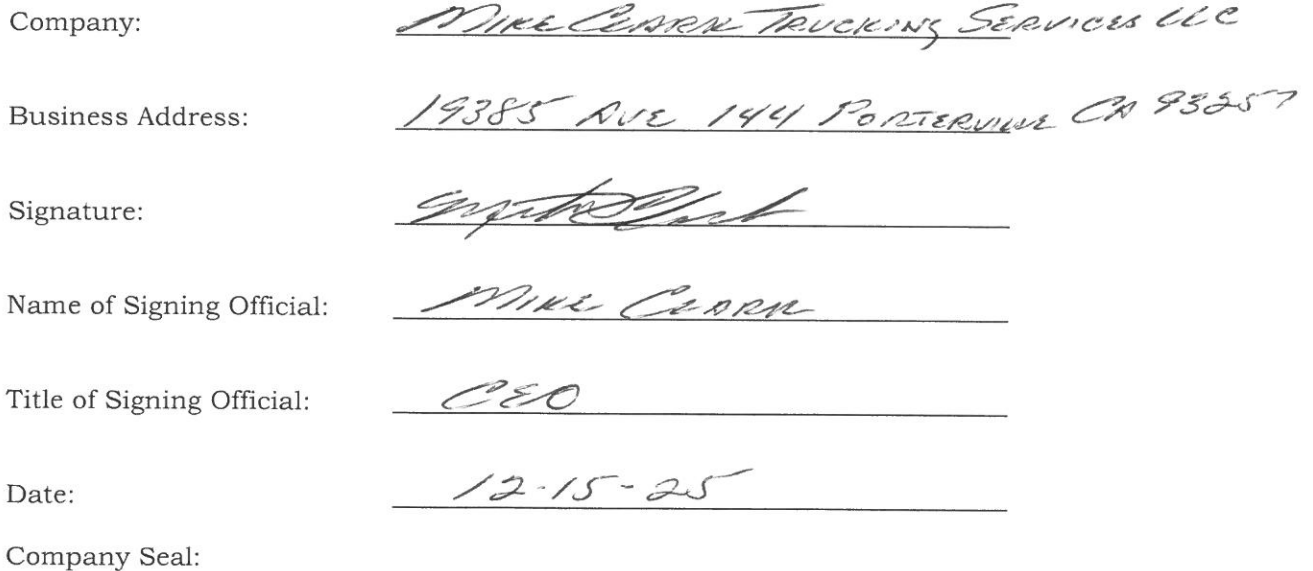 Company: MIKE CLARK TRUCKING SERVICES LLC
Business Address: 19385 AVE 144 PORTERVILLE CA 93257
Signature:
Name of Signing Official: MIKE CLARK
Title of Signing Official: CEO
Date: 12-15-25
Company Seal: